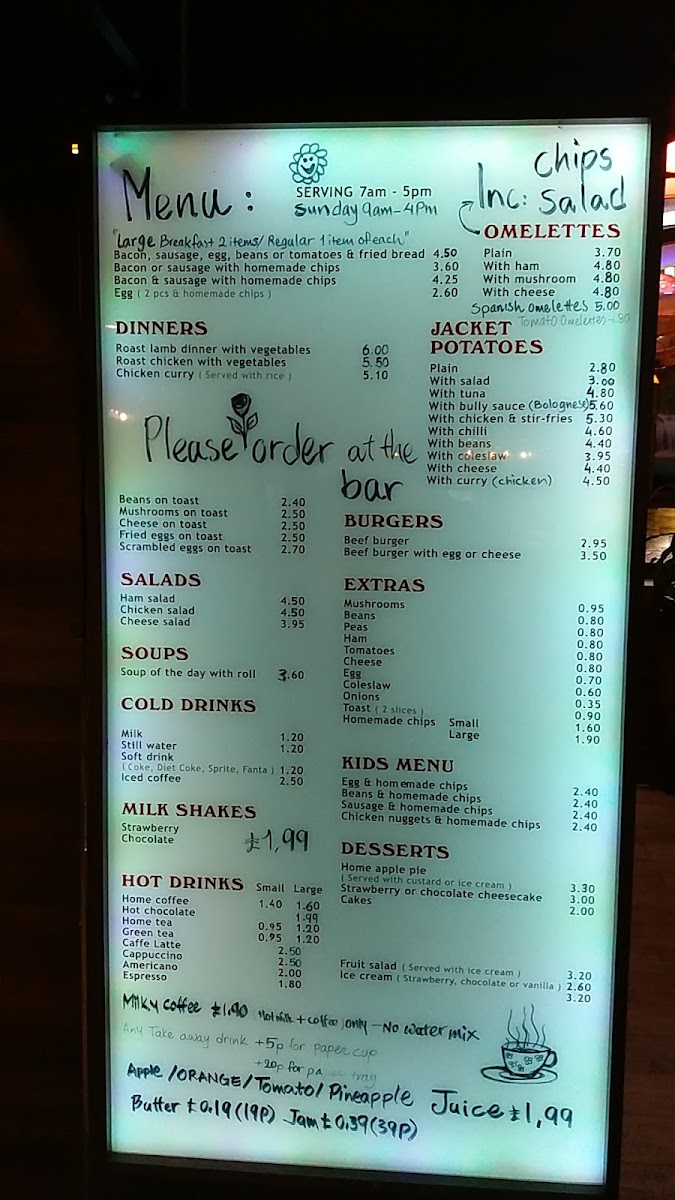 Menu:
SERVING 7am - 5pm
Sunday 9am-4Pm
"Large Breakfast 2 items/ Regular 1 item of each"
Bacon, sausage, egg, beans or tomatoes & fried bread 4.50
Bacon or sausage with homemade chips 3.60
Bacon & sausage with homemade chips 4.25
Egg ( 2 pcs & homemade chips ) 2.60
chips
Inc: Salad
OMELETTES
Plain 3.70
With ham 4.80
With mushroom 4.80
With cheese 4.80
Spanish omelettes 5.00
Tomato Omelettes
DINNERS
Roast lamb dinner with vegetables 6.00
Roast chicken with vegetables 5.50
Chicken curry ( Served with rice ) 5.10
JACKET
POTATOES
Plain 2.80
With salad 3.00
With tuna 4.80
With bully sauce (Bolognese) 5.60
With chicken & stir-fries 5.30
With chilli 4.60
With beans 4.40
With coleslaw 3.95
With cheese 4.40
With curry (chicken) 4.50
Please order at the
bar
Beans on toast 2.40
Mushrooms on toast 2.50
Cheese on toast 2.50
Fried eggs on toast 2.50
Scrambled eggs on toast 2.70
BURGERS
Beef burger 2.95
Beef burger with egg or cheese 3.50
SALADS
Ham salad 4.50
Chicken salad 4.50
Cheese salad 3.95
SOUPS
Soup of the day with roll 3.60
EXTRAS
Mushrooms 0.95
Beans 0.80
Peas 0.80
Ham 0.80
Tomatoes 0.80
Cheese 0.80
Egg 0.70
Coleslaw 0.60
Onions 0.35
Toast ( 2 slices ) 0.90
Homemade chips Small 1.60
Large 1.90
COLD DRINKS
Milk 1.20
Still water 1.20
Soft drink
( Coke, Diet Coke, Sprite, Fanta ) 1.20
Iced coffee 2.50
KIDS MENU
Egg & homemade chips 2.40
Beans & homemade chips 2.40
Sausage & homemade chips 2.40
Chicken nuggets & homemade chips 2.40
MILK SHAKES
Strawberry
Chocolate
£1,99
DESSERTS
Home apple pie
( Served with custard or ice cream ) 3.30
Strawberry or chocolate cheesecake 3.00
Cakes 2.00
Fruit salad ( Served with ice cream ) 3.20
Ice cream ( Strawberry, chocolate or vanilla ) 2.60
3.20
HOT DRINKS Small Large
Home coffee 1.40 1.60
Hot chocolate 1.99
Home tea 0.95 1.20
Green tea 0.95 1.20
Caffe Latte 2.50
Cappuccino 2.50
Americano 2.00
Espresso 1.80
Milky coffee £1.90 (Hot milk + coffee) only - No water mix
Any Take away drink +5p for paper cup
+20p for
tray
Apple /ORANGE/Tomato/ Pineapple Juice £1,99
Butter £0.19(19P) Jam £0.39(39P)